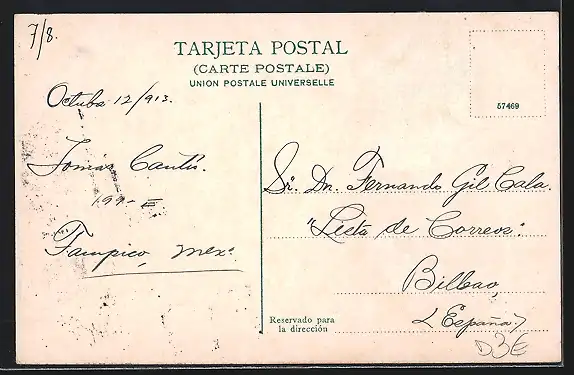 7/8.
TARJETA POSTAL
(CARTE POSTALE)
UNION POSTALE UNIVERSELLE
57469
Octuba 12/913.
Tomás Cantú.
199-E
Tampico, Mex.
Sr. Dn. Fernando Gil Cala.
"Lista de Correos".
Bilbao,
(España)
Reservado para
la dirección
D3E